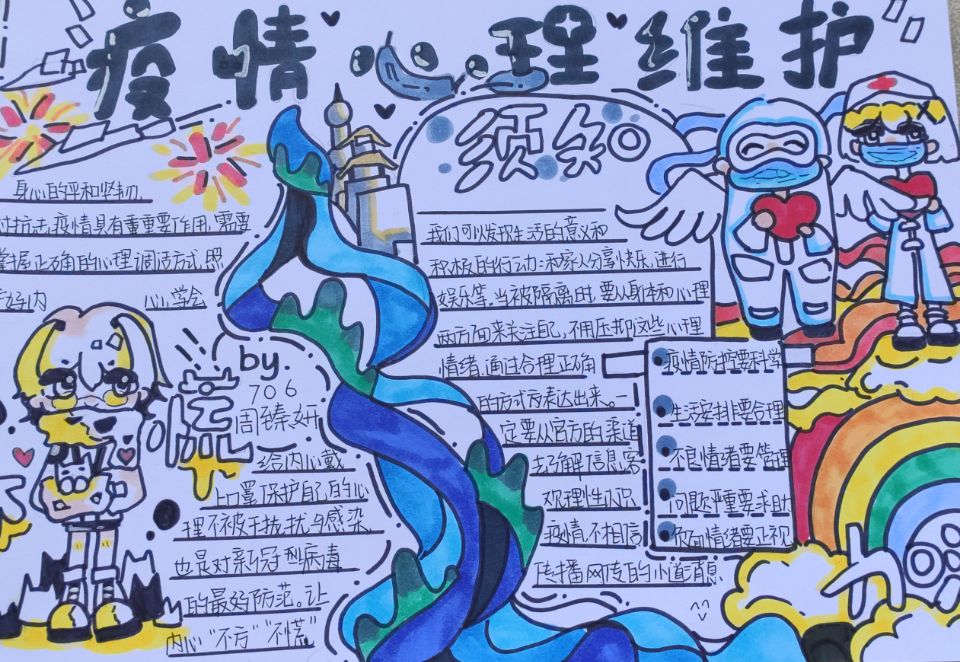 疫情心理维护
须知
身心的平和坚韧
对抗击疫情具有重要作用,需要
掌握正确的心理调适方式,照
好内心,学会
by.
706
周臻妍
不慌
给内心戴
上口罩保护自己的心
理不被干扰扰与感染
也是对新冠型病毒
的最好防范。让
内心“不方”“不慌”
我们可以发掘生活的意义和
积极的行动:和家人分享快乐,进行
娱乐等。当被隔离时,要从身体和心理
两方面来关注自己,不用压抑这些心理
情绪,通过合理正确
的方式方表达出来。一
定要从官方的渠道
去了解信息,客
观理性认识
疫情,不相信
传播网传的小道消息
疫情防护要科学
生活安排要合理
不良情绪要管理
问题严重要求助
负面情绪要正视